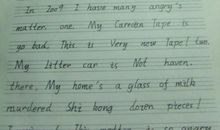 In 2009 I have many angry's
matter. one. My Carrton Tape is
go bad. This is Very new Tape! two.
My Litter car is Not haven.
there, My home's a glass of milk
murdered Shi kong dozen pieces!